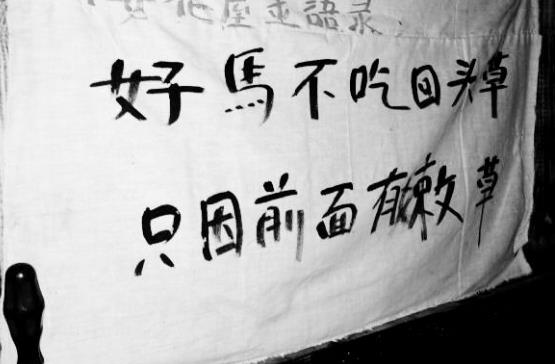 花座並語录
好馬不吃回头草
只因前面有嫩草